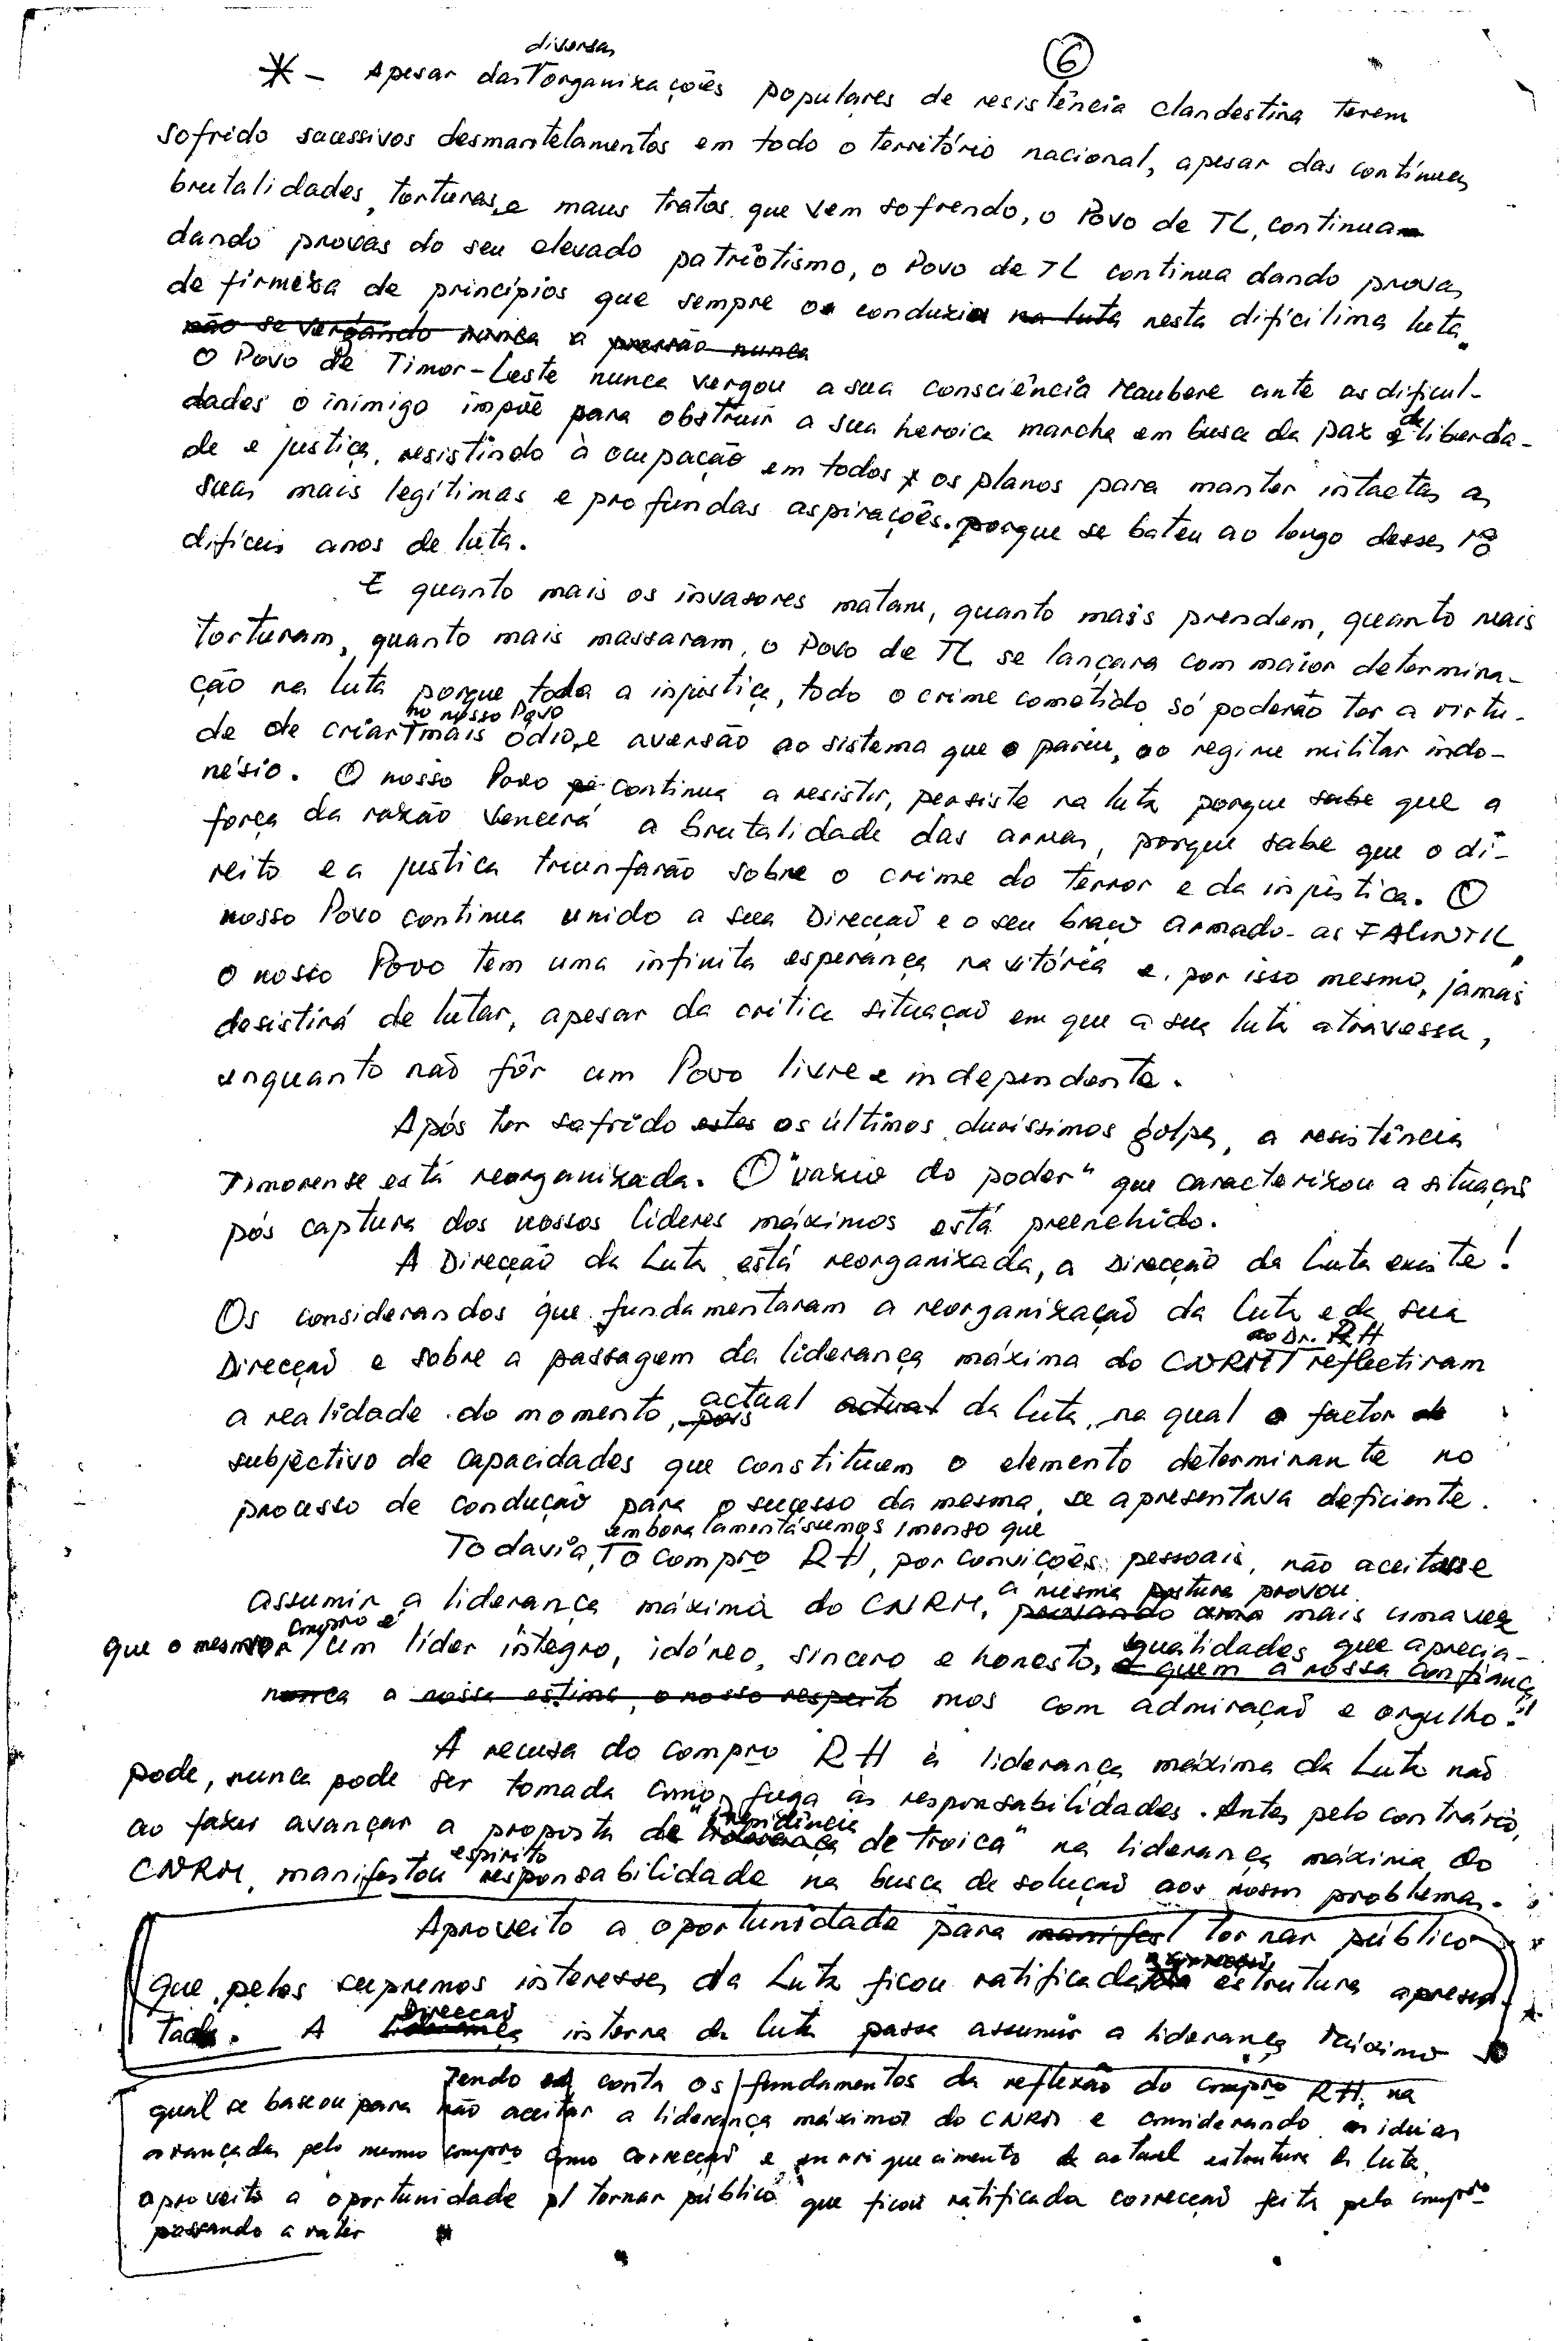 6
diversas
* - Apesar das organizações populares de resistência clandestina terem
sofrido sucessivos desmantelamentos em todo o território nacional, apesar das contínuas
brutalidades, torturas, e maus tratos que vem sofrendo, o Povo de TL, continua
dando provas do seu elevado patriotismo, o Povo de TL continua dando provas
de firmeza de princípios que sempre o conduziu na luta nesta dificílima luta.
não se vergando nunca a pressão nunca
O Povo de Timor-Leste nunca vergou a sua consciência Maubere ante as dificul-
dades o inimigo impõe para obstruir a sua heroica marcha em busca da paz e de liberda-
de e justiça, resistindo à ocupação em todos os planos para manter intactas as
suas mais legítimas e profundas aspirações. porque se bateu ao longo desses 18
difíceis anos de luta.
E quanto mais os invasores matam, quanto mais prendem, quanto mais
torturam, quanto mais massaram, o Povo de TL se lançara com maior determina-
ção na luta porque toda a injustiça, todo o crime cometido só poderão ter a virtu-
no nosso Povo
de de criar mais ódio, e aversão ao sistema que o pariu, ao regime militar indo-
nésio. O nosso Povo continua a resistir, persiste na luta porque sabe que a
força da razão vencerá a brutalidade das armas, porque sabe que o di-
reito e a justiça triunfarão sobre o crime do terror e da injustica. O
nosso Povo continua unido a sua Direcção e o seu braço armado - as FALINTIL.
O nosso Povo tem uma infinita esperança na vitória e, por isso mesmo, jamais
desistirá de lutar, apesar da crítica situação em que a sua luta atravessa,
enquanto não fôr um Povo livre e independente.
Após ter sofrido estes os últimos duríssimos golpes, a resistência
Timorense está reorganizada. O "vazio do poder" que caracterizou a situação
pós captura dos nossos líderes máximos está preenchido.
A Direcção da Luta está reorganizada, a Direcção da Luta existe!
Os considerandos que fundamentaram a reorganização da Luta e da sua
ao Dr. RH
Direcção e sobre a passagem da liderança máxima do CNRM reflectiram
a realidade do momento, pois actual actual da luta, na qual o factor de
subjectivo de capacidades que constituem o elemento determinante no
processo de condução para o sucesso da mesma, se apresentava deficiente.
embora lamentássemos imenso que
Todavia, o compro RH, por convicções pessoais, não aceitasse
assumir a liderança máxima do CNRM, a mesma postura provou provando uma mais uma vez
compro é
que o mesmo um líder íntegro, idóneo, sincero e honesto, qualidades que aprecia-
e quem a nossa confiança
nunca a nossa estima, o nosso respeito mos com admiração e orgulho."
A recusa do compro RH à liderança máxima da Luta não
pode, nunca pode ser tomada como fuga às responsabilidades. Antes pelo contrário,
ao fazer avançar a proposta de "presidência liderança de troica" na liderança máxima do
espirito
CNRM, manifestou responsabilidade na busca de solução aos nossos problemas.
Aproveito a oportunidade para manifest tornar público
que, pelos supremos interesses da Luta ficou ratificada estrutura apresen-
Direcção
tada. A liderança interna da luta passa assumir a liderança máxima
Tendo em conta os fundamentos da reflexão do compro RH, na
qual se baseou para não aceitar a liderança máxima do CNRM e considerando as ideias
avançadas pelo mesmo compro como correcção e enriquecimento da actual estrutura da luta,
aproveito a oportunidade p/ tornar público que ficou ratificada correcção feita pelo compro
passando a valer